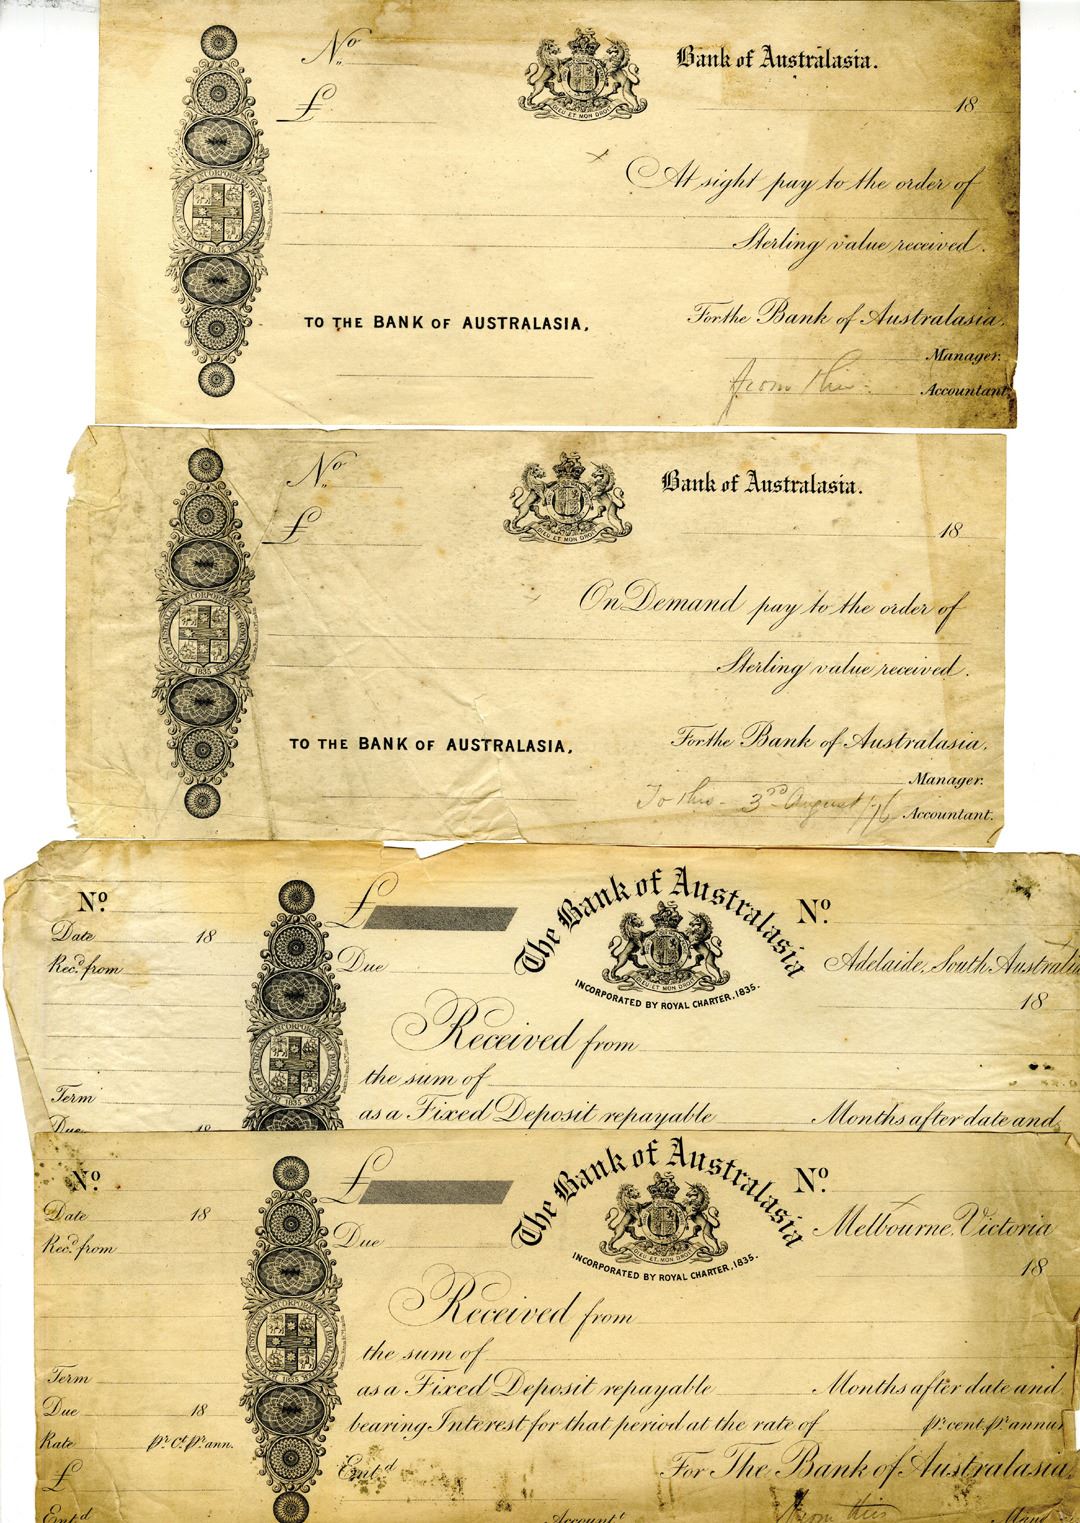 Nº
Bank of Australasia.
£
DIEU ET MON DROIT
18
At sight pay to the order of
BANK OF AUSTRALASIA INCORPORATED BY ROYAL CHARTER 1835
Sterling value received.
TO THE BANK OF AUSTRALASIA,
For the Bank of Australasia.
Manager.
from this
Accountant.
Nº
Bank of Australasia.
£
DIEU ET MON DROIT
18
On Demand pay to the order of
BANK OF AUSTRALASIA INCORPORATED BY ROYAL CHARTER 1835
Sterling value received.
TO THE BANK OF AUSTRALASIA,
For the Bank of Australasia,
Manager.
To this - 3rd August /76
Accountant.
Nº
£
The Bank of Australasia
Nº
Date 18
Recd. from
Due
DIEU ET MON DROIT
Adelaide, South Australia
INCORPORATED BY ROYAL CHARTER, 1835.
18
Received from
BANK OF AUSTRALASIA INCORPORATED BY ROYAL CHARTER 1835
the sum of
Term
as a Fixed Deposit repayable Months after date and
Due 18
Nº
£
The Bank of Australasia
Nº
Date 18
Melbourne, Victoria
Recd. from
Due
DIEU ET MON DROIT
INCORPORATED BY ROYAL CHARTER, 1835.
18
Received from
BANK OF AUSTRALASIA INCORPORATED BY ROYAL CHARTER 1835
the sum of
Term
as a Fixed Deposit repayable Months after date and
Due 18
bearing Interest for that period at the rate of pr. cent. pr. annum
Rate pr. Ct. pr. ann.
£
Entd
For The Bank of Australasia
from this
Entd
Accountt